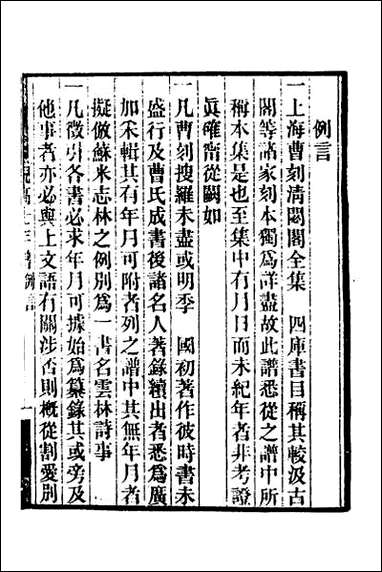 例言
一上海曹刻清閟閣全集　四庫書目稱其較汲古
閣等諸家刻本獨爲詳盡故此譜悉從之譜中所
稱本集是也至集中有月日而未紀年者非考證
眞確甯從闕如
一凡曹刻搜羅未盡或明季　國初著作彼時書未
盛行及曹氏成書後諸名人著錄續出者悉爲廣
加釆輯其有年月可附者列之譜中其無年月者
擬倣蘇米志林之例別爲一書名雲林詩事
一凡徵引各書必求年月可據始爲纂錄其或旁及
他事者亦必與上文語有關涉否則概從割愛別
高士年譜例言